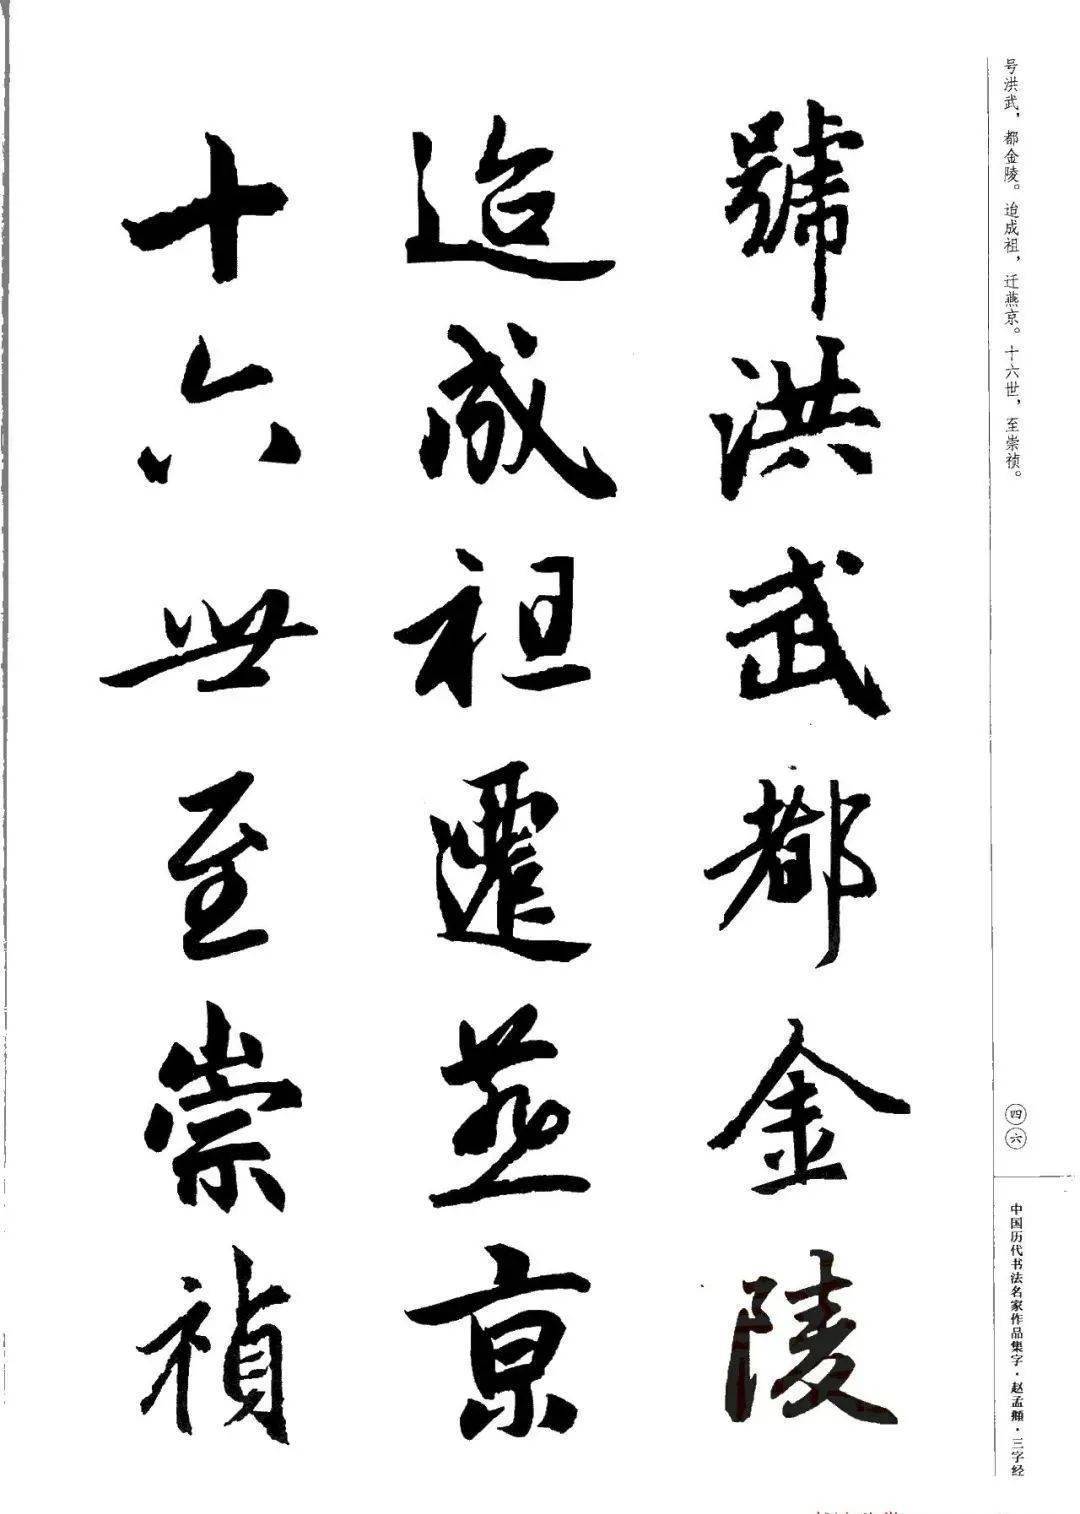 号洪武，都金陵。迨成祖，迁燕京。十六世，至崇祯。
號洪武都金陵
迨成祖遷燕京
十六世至崇禎
四六
中国历代书法名家作品集字·赵孟頫·三字经